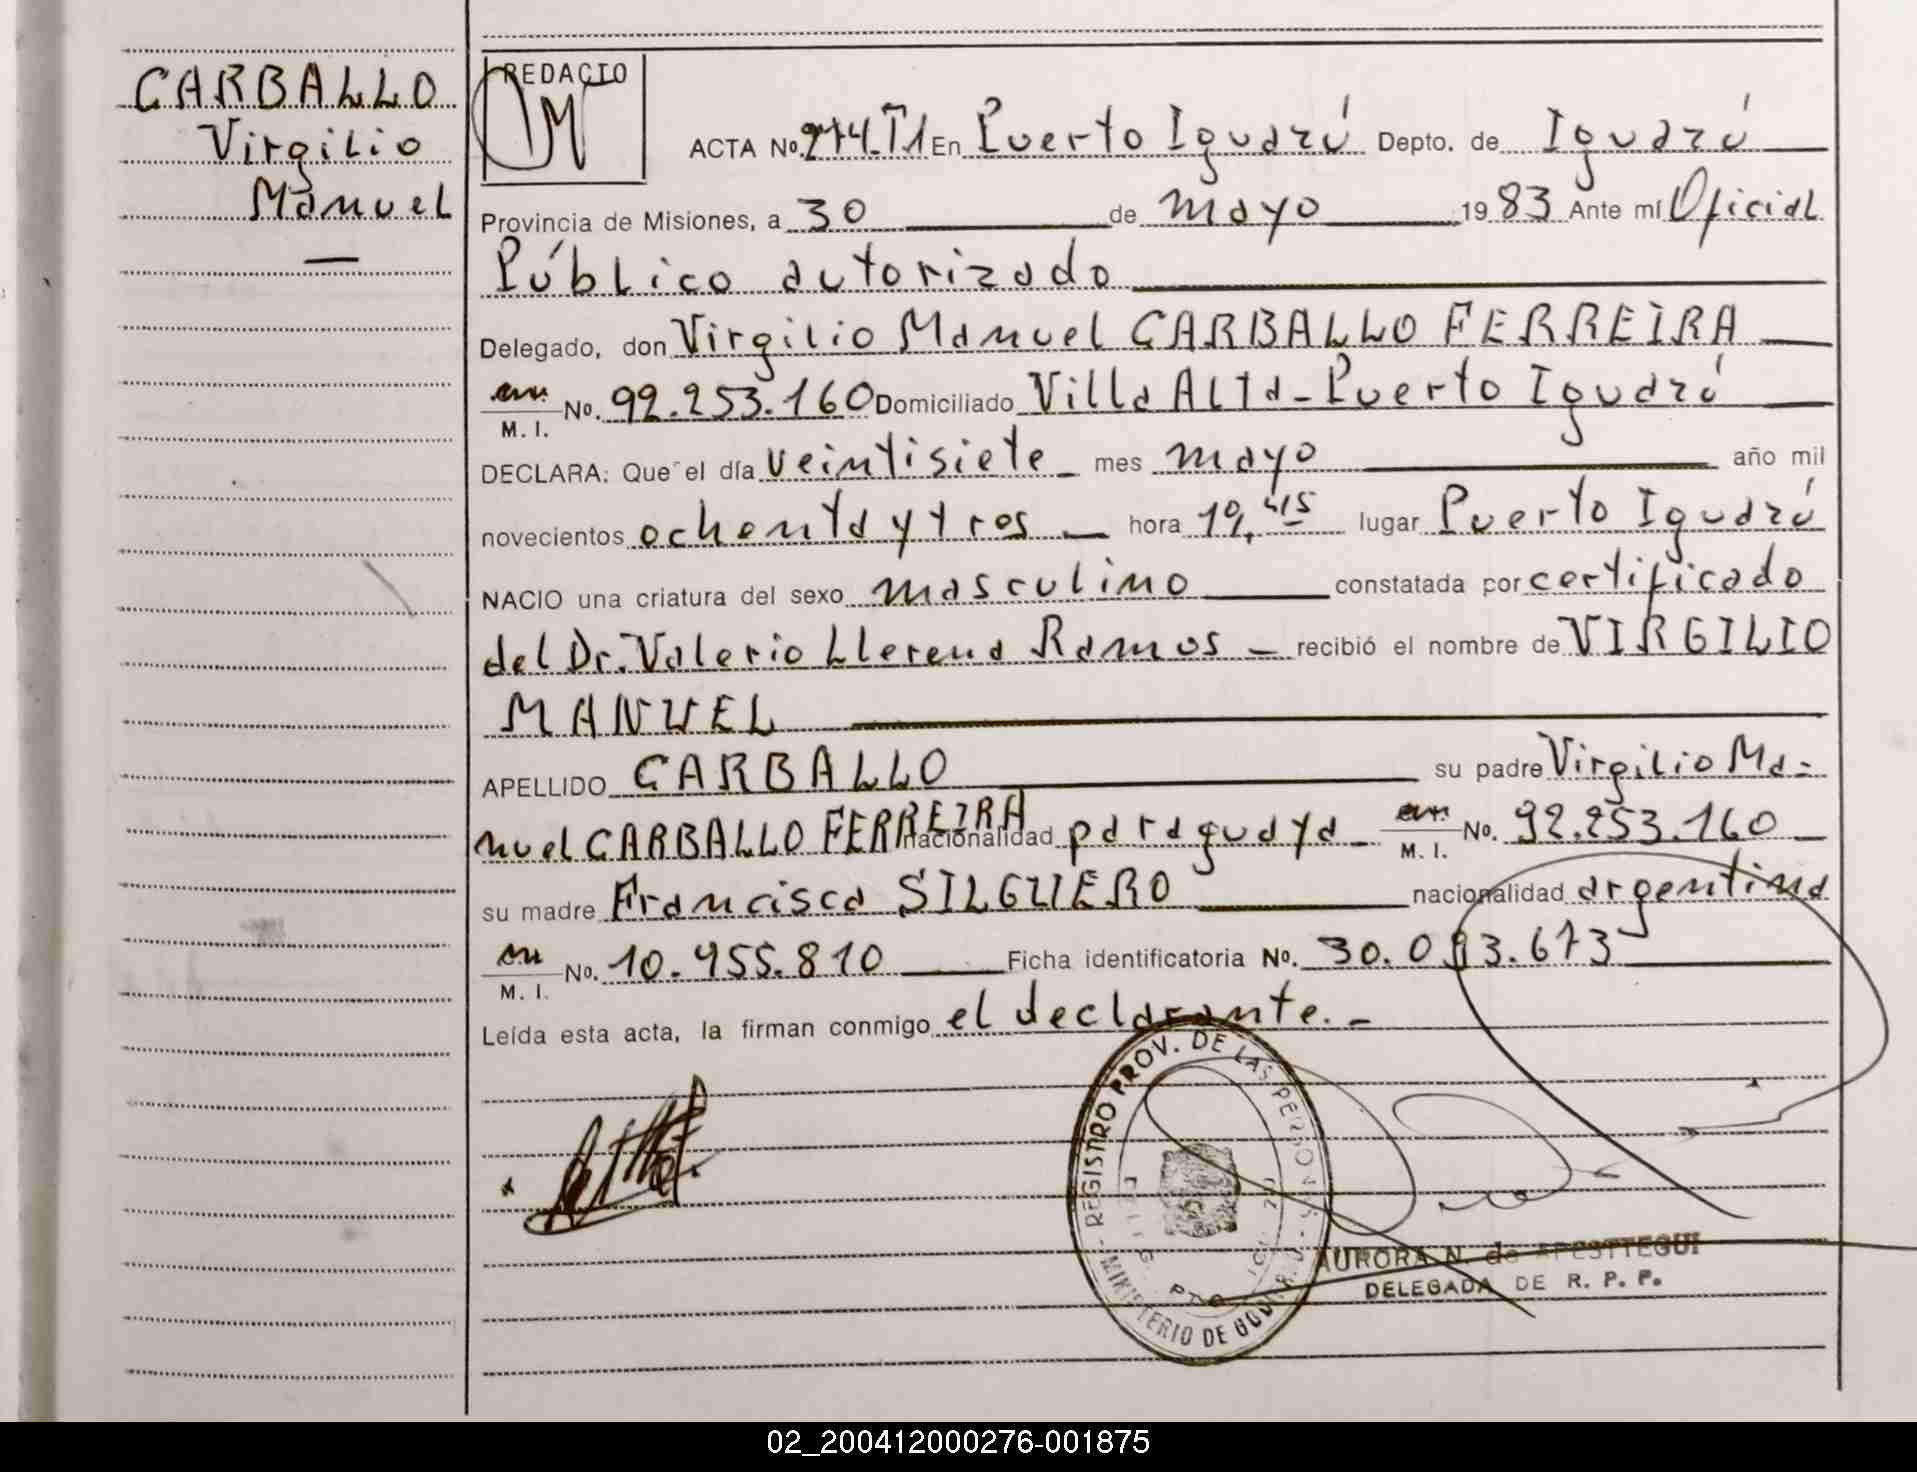 CARBALLO
Virgilio
Manuel
REDACTO
ACTA No. 274.T1 En Puerto Iguazú Depto. de Iguazú
Provincia de Misiones, a 30 de mayo 1983 Ante mí Oficial
Público autorizado
Delegado, don Virgilio Manuel CARBALLO FERREIRA
M. I. No. 92.253.160 Domiciliado Villa Alta - Puerto Iguazú
DECLARA: Que el día veintisiete mes mayo año mil
novecientos ochenta y tres hora 19,45 lugar Puerto Iguazú
NACIO una criatura del sexo masculino constatada por certificado
del Dr. Valerio Llerena Ramos recibió el nombre de VIRGILIO
MANUEL
APELLIDO CARBALLO su padre Virgilio Ma-
nuel CARBALLO FERREIRA nacionalidad paraguaya M. I. No. 92.253.160
su madre Francisca SILGUERO nacionalidad argentina
M. I. No. 10.955.810 Ficha identificatoria No. 30.013.673
Leída esta acta, la firman conmigo el declarante.-
REGISTRO PROV. DE LAS PERSONAS
MINISTERIO DE GOB.
AURORA N. de APESTTEGUI
DELEGADA DE R. P. P.
02_200412000276-001875